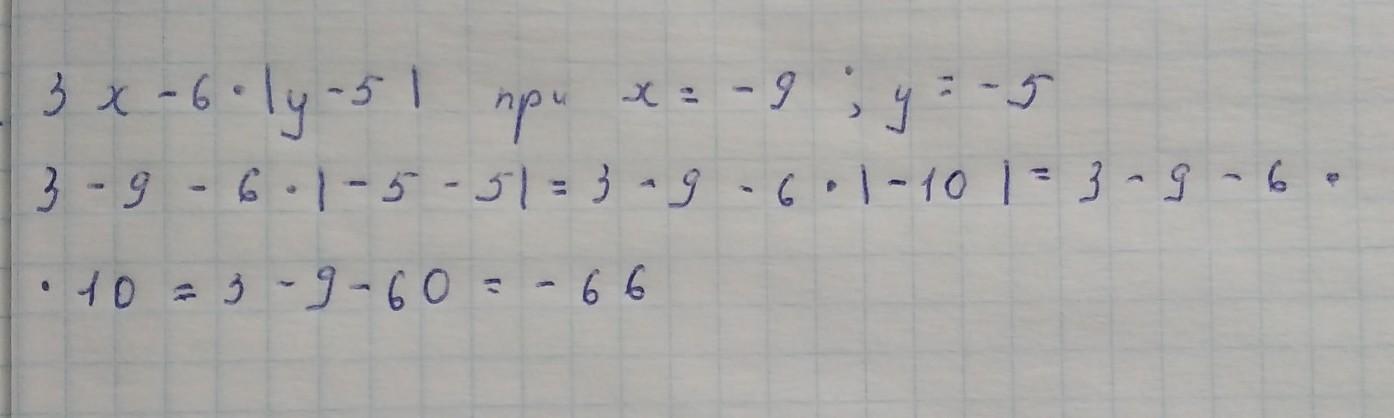 3 x - 6 · |y - 5| при x = - 9 ; y = - 5
3 - 9 - 6 · |- 5 - 5| = 3 - 9 - 6 · |- 10| = 3 - 9 - 6 ·
· 10 = 3 - 9 - 60 = - 66